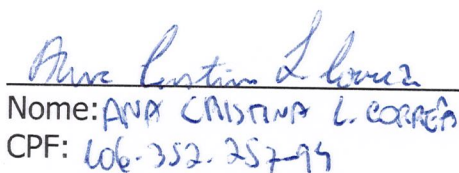 Ana Cristina L Correa
Nome: ANA CRISTINA L. CORREA
CPF: 106.352.257-94